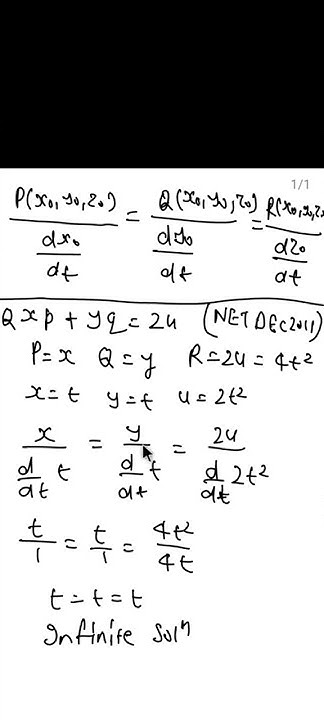 1/1
P(x₀, y₀, z₀) / (dx₀/dt) = Q(x₀, y₀, z₀) / (dy₀/dt) = R(x₀, y₀, z₀) / (dz₀/dt)
Q xp + yq = 2u (NET DEC 2011)
P = x Q = y R = 2u = 4t²
x = t y = t u = 2t²
x / (d/dt t) = y / (d/dt t) = 2u / (d/dt 2t²)
t/1 = t/1 = 4t²/4t
t = t = t
Infinite solⁿ